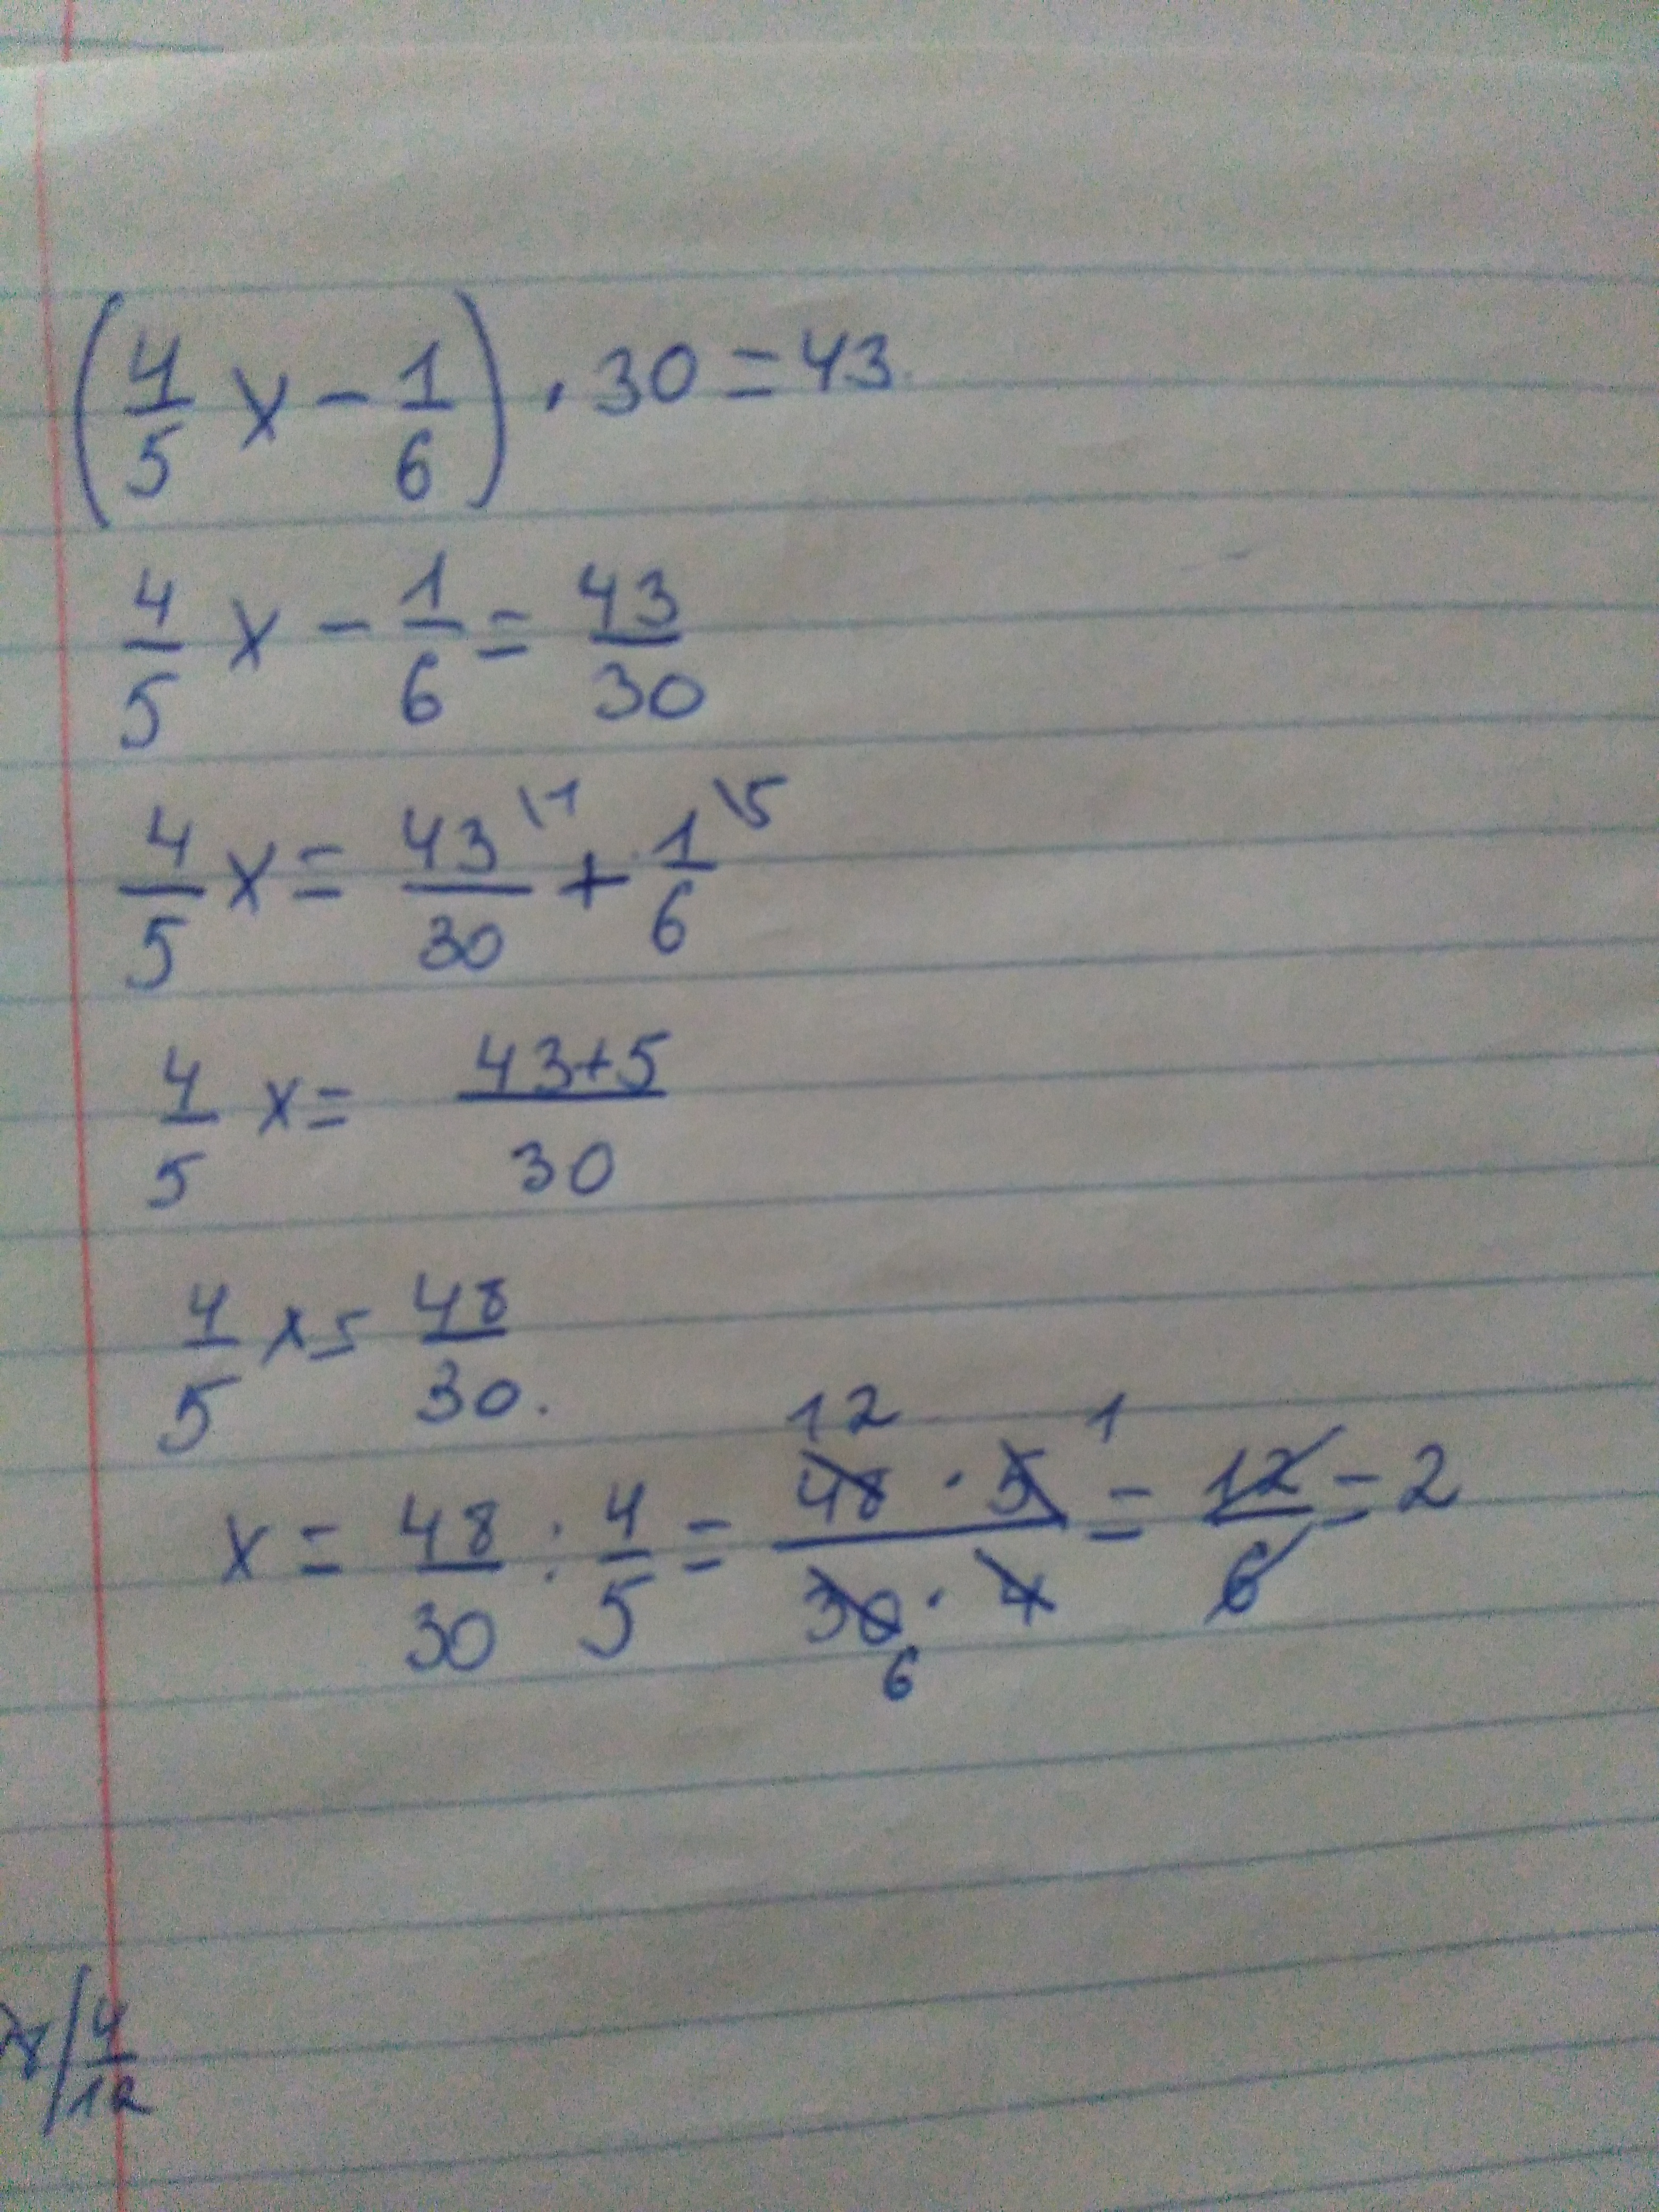 (4/5 x - 1/6) · 30 = 43
4/5 x - 1/6 = 43/30
4/5 x = 43\1/30 + 1\5/6
4/5 x = 43+5/30
4/5 x = 48/30.
x = 48/30 : 4/5 = 48 12 · 5 1/30 6 · 4 = 12/6 = 2
4/12